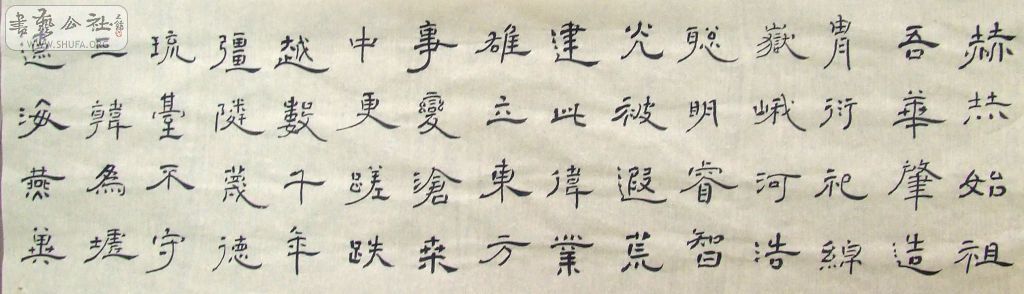 赫赫始祖
吾華肇造
胄衍祀綿
嶽峨河浩
聰明睿智
光被遐荒
建此偉業
雄立東方
事變滄桑
中更蹉跌
越數千年
彊隣蔑德
琉臺不守
三韓為墟
遼海燕冀
書藝公社
WWW.SHUFA.ORG